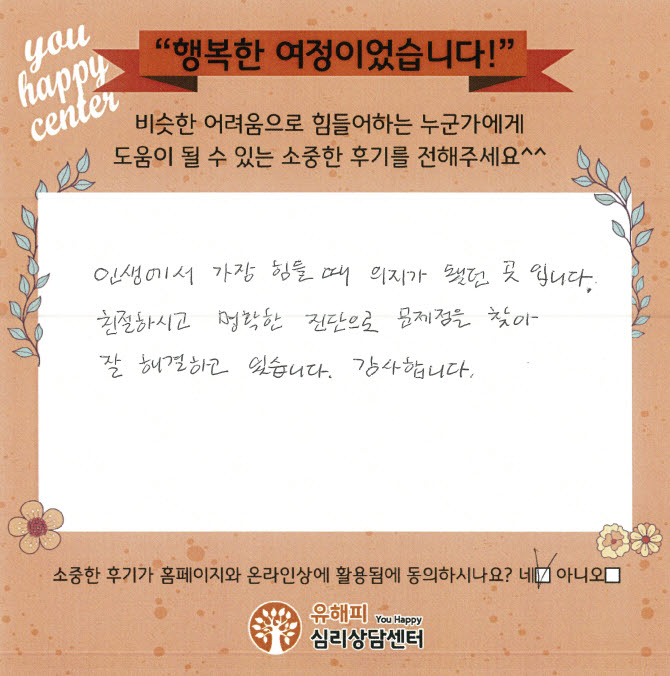 you
happy
center
“행복한 여정이었습니다!”
비슷한 어려움으로 힘들어하는 누군가에게
도움이 될 수 있는 소중한 후기를 전해주세요^^
인생에서 가장 힘들 때 의지가 됐던 곳 입니다.
친절하시고 명확한 진단으로 문제점을 찾아
잘 해결하고 있습니다. 감사합니다.
소중한 후기가 홈페이지와 온라인상에 활용됨에 동의하시나요? 네☑ 아니오☐
유해피 You Happy
심리상담센터